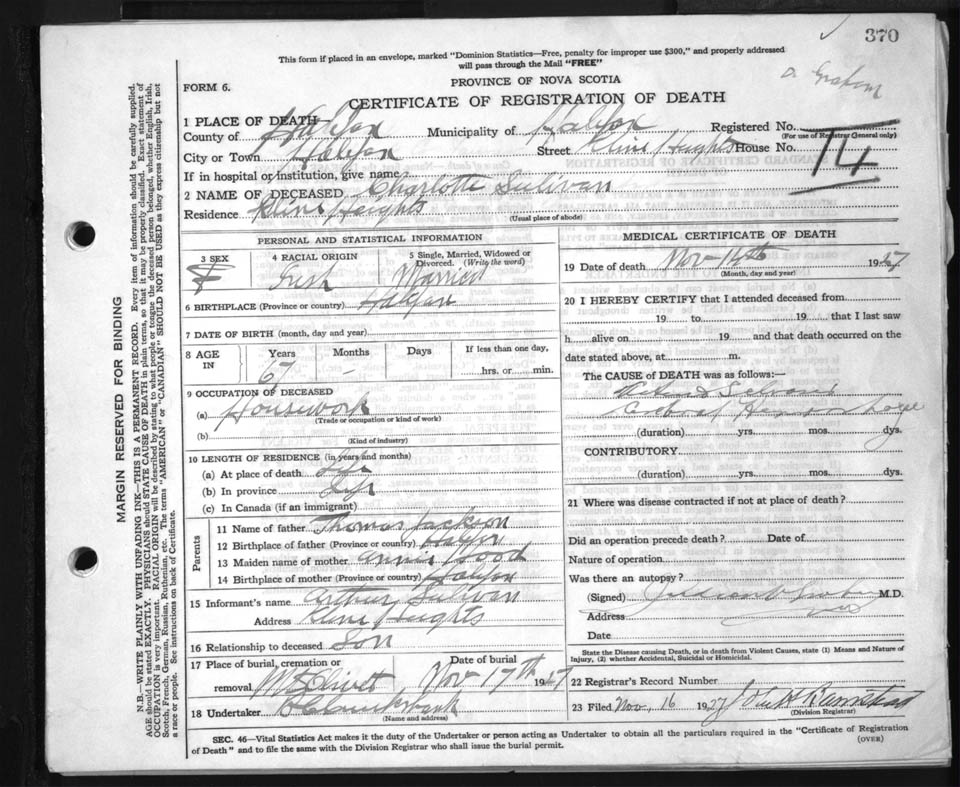 370
This form if placed in an envelope, marked "Dominion Statistics—Free, penalty for improper use $300," and properly addressed
will pass through the Mail "FREE"
Dr. Graham
PROVINCE OF NOVA SCOTIA
FORM 6.
CERTIFICATE OF REGISTRATION OF DEATH
1 PLACE OF DEATH—
County of Halifax Municipality of Halifax Registered No.
(For use of Registrar General only)
City or Town Halifax Street Kline Heights House No.
74
If in hospital or institution, give name
2 NAME OF DECEASED Charlotte Sulivan
Residence Kline Heights
(Usual place of abode)
PERSONAL AND STATISTICAL INFORMATION
3 SEX F
4 RACIAL ORIGIN Irish
5 Single, Married, Widowed or Divorced. (Write the word) Married
6 BIRTHPLACE (Province or country) Halifax
7 DATE OF BIRTH (month, day and year)
8 AGE IN Years Months Days If less than one day,
67 - hrs. or min.
9 OCCUPATION OF DECEASED
(a) Housework
(Trade or occupation or kind of work)
(b)
(Kind of industry)
10 LENGTH OF RESIDENCE (in years and months)
(a) At place of death Life
(b) In province Life
(c) In Canada (if an immigrant)
Parents
11 Name of father Thomas Jackson
12 Birthplace of father (Province or country) Halifax
13 Maiden name of mother Annie Wood
14 Birthplace of mother (Province or country) Halifax
15 Informant's name Arthur Sulivan
Address Kline Heights
16 Relationship to deceased Son
17 Place of burial, cremation or removal Mt Olivet
Date of burial Nov 17th 1927
18 Undertaker Cruikshank
(Name and address)
MEDICAL CERTIFICATE OF DEATH
19 Date of death Nov 14th 1927
(Month, day and year)
20 I HEREBY CERTIFY that I attended deceased from
19 to 19 that I last saw
h alive on 19 and that death occurred on the
date stated above, at m.
The CAUSE of DEATH was as follows:—
Arterio Sclerosis
Cerebral Hemorrhage
(duration) yrs. mos. dys.
CONTRIBUTORY
(duration) yrs. mos. dys.
21 Where was disease contracted if not at place of death?
Did an operation precede death? Date of
Nature of operation
Was there an autopsy?
(Signed) M.D.
Address
Date
State the Disease causing Death, or in death from Violent Causes, state (1) Means and Nature of
Injury, (2) whether Accidental, Suicidal or Homicidal.
22 Registrar's Record Number
23 Filed Nov. 16 1927 John H Barnstead
(Division Registrar)
SEC. 46—Vital Statistics Act makes it the duty of the Undertaker or person acting as Undertaker to obtain all the particulars required in the "Certificate of Registration
of Death" and to file the same with the Division Registrar who shall issue the burial permit.
(OVER)
MARGIN RESERVED FOR BINDING
N.B.—WRITE PLAINLY WITH UNFADING INK—THIS IS A PERMANENT RECORD. Every item of information should be carefully supplied.
AGE should be stated EXACTLY. PHYSICIANS should STATE CAUSE OF DEATH in plain terms, so that it may be properly classified. Exact statement of
OCCUPATION is very important. RACIAL ORIGIN will be described by stating to what people or tongue the deceased person belonged, whether English, Irish,
Scotch, French, German, Russian, Ruthenian, etc. The terms "AMERICAN" or "CANADIAN" SHOULD NOT BE USED as they express citizenship but not
a race or people. See instructions on back of Certificate.